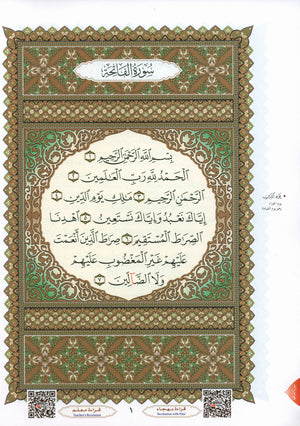 سُورَةُ الفَاتِحَةِ
بِسْمِ اللَّهِ الرَّحْمَٰنِ الرَّحِيمِ ١
الْحَمْدُ لِلَّهِ رَبِّ الْعَالَمِينَ ٢
الرَّحْمَٰنِ الرَّحِيمِ ٣ مَالِكِ يَوْمِ الدِّينِ ٤
إِيَّاكَ نَعْبُدُ وَإِيَّاكَ نَسْتَعِينُ ٥ اهْدِنَا
الصِّرَاطَ الْمُسْتَقِيمَ ٦ صِرَاطَ الَّذِينَ أَنْعَمْتَ
عَلَيْهِمْ غَيْرِ الْمَغْضُوبِ عَلَيْهِمْ
وَلَا الضَّالِّينَ ٧
يَوْمِ الدِّينِ
قراءة معلم
Teacher's Recitation
١
قراءة بهجاء
Recitation with Hijaa